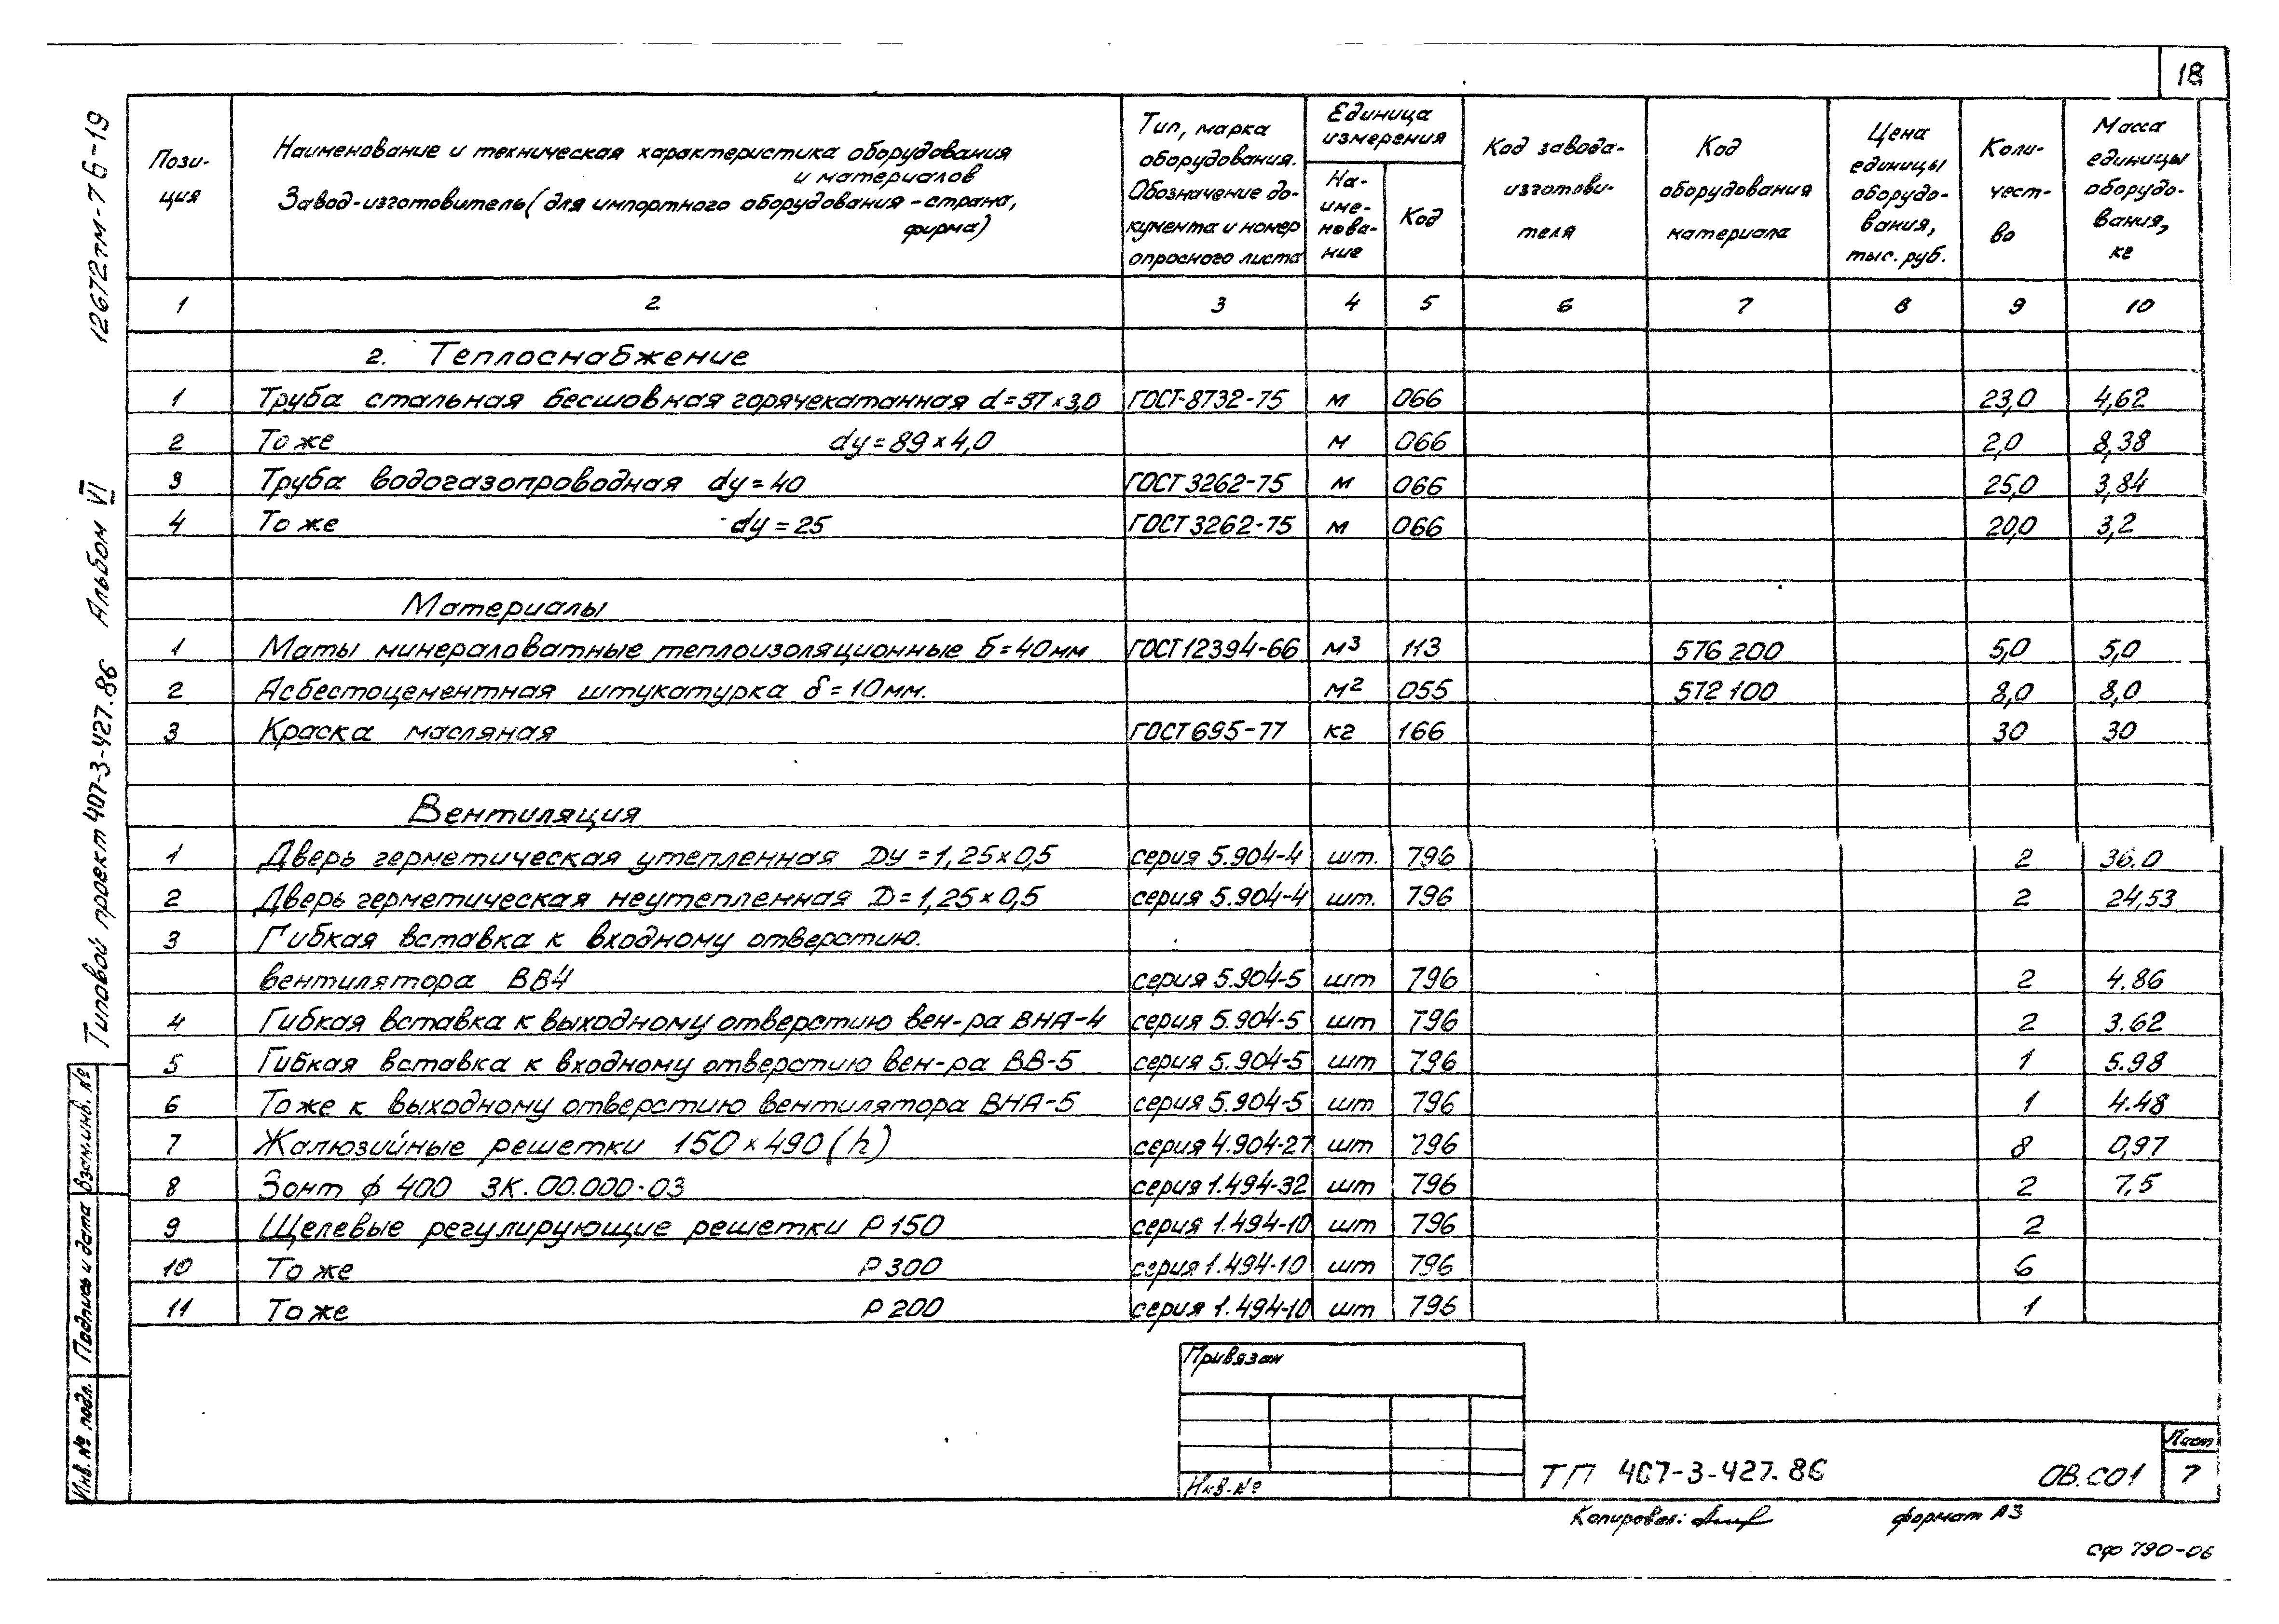 18
Пози-
ция
Наименование и техническая характеристика оборудования
и материалов
Завод-изготовитель (для импортного оборудования - страна,
фирма)
Тип, марка
оборудования.
Обозначение до-
кумента и номер
опросного листа
Единица
измерения
На-
име-
нова-
ние
Код
Код завода-
изготови-
теля
Код
оборудования
материала
Цена
единицы
оборудо-
вания,
тыс. руб.
Коли-
чест-
во
Масса
единицы
оборудо-
вания,
кг
1 2 3 4 5 6 7 8 9 10
2. Теплоснабжение
1 Труба стальная бесшовная горячекатанная d=57×3,0 ГОСТ-8732-75 м 066 23,0 4,62
2 То же dy=89×4,0 м 066 2,0 8,38
3 Труба водогазопроводная dy=40 ГОСТ 3262-75 м 066 25,0 3,84
4 То же dy=25 ГОСТ 3262-75 м 066 20,0 3,2
Материалы
1 Маты минераловатные теплоизоляционные б=40мм ГОСТ 12394-66 м³ 113 576 200 5,0 5,0
2 Асбестоцементная штукатурка δ=10мм. м² 055 572 100 8,0 8,0
3 Краска масляная ГОСТ 695-77 кг 166 30 30
Вентиляция
1 Дверь герметическая утепленная Dy=1,25×0,5 серия 5.904-4 шт. 796 2 36.0
2 Дверь герметическая неутепленная D=1,25×0,5 серия 5.904-4 шт. 796 2 24,53
3 Гибкая вставка к входному отверстию.
вентилятора ВВ4 серия 5.904-5 шт 796 2 4.86
4 Гибкая вставка к выходному отверстию вен-ра ВНА-4 серия 5.904-5 шт 796 2 3.62
5 Гибкая вставка к входному отверстию вен-ра ВВ-5 серия 5.904-5 шт 796 1 5.98
6 То же к выходному отверстию вентилятора ВНА-5 серия 5.904-5 шт 796 1 4.48
7 Жалюзийные решетки 150×490(h) серия 4.904-27 шт 796 8 0,97
8 Зонт ϕ 400 ЗК.00.000-03 серия 1.494-32 шт 796 2 7,5
9 Щелевые регулирующие решетки Р150 серия 1.494-10 шт 796 2
10 То же Р300 серия 1.494-10 шт 796 6
11 То же Р200 серия 1.494-10 шт 796 1
Привязан
Инв.№
ТП 407-3-427.86 ОВ.СО1
Лист
7
Копировал:
формат А3
сф 790-06
12672тм-Т6-19
Типовой проект 407-3-427.86 Альбом VI
Взам.инв.№
Подпись и дата
Инв.№ подл.